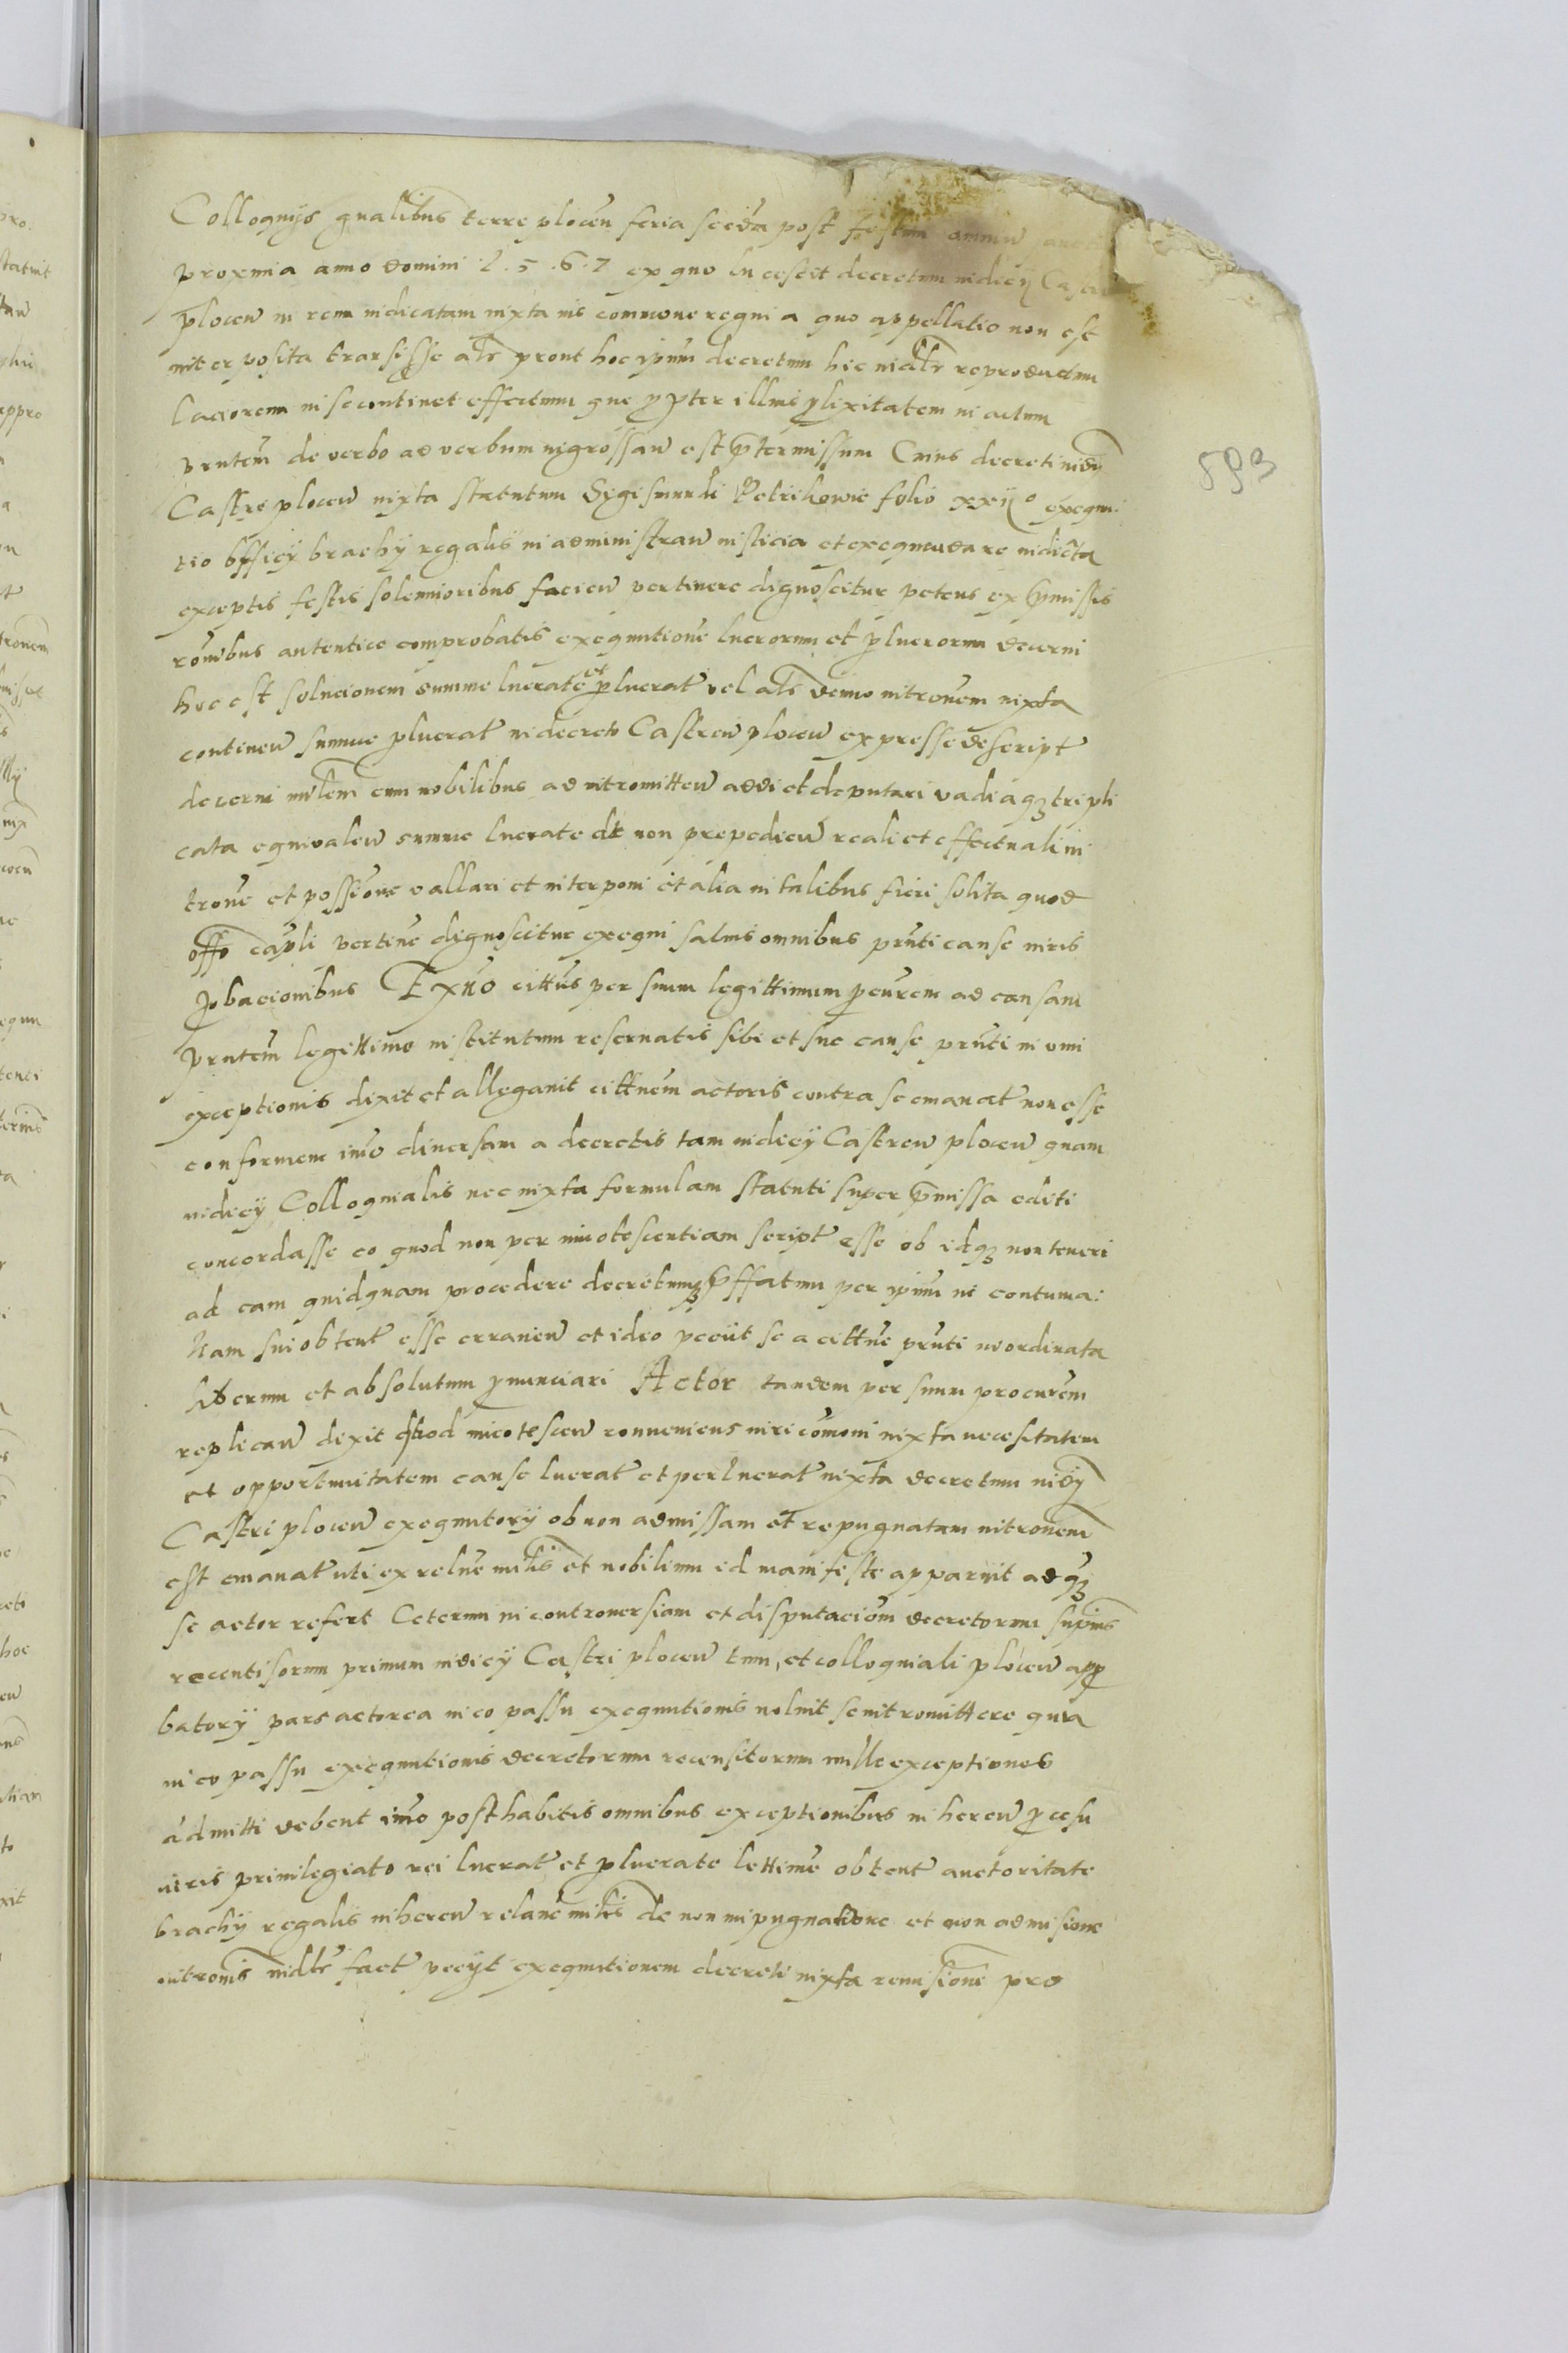 Colloquijs gnalibus terre plocen feria secda post festum omniu
proxmia anno domini 1.5.6.7 ex quo in cessit decretum iudicij Cas
plocen in rem iudicatam iuxta ius commune regni a quo appellatio non est
interposita transisse als prout hoc ipsum decretum hic iudlr reproductum
laciorem in se continet effectum que propter illius prolixitatem in actum
prntem de verbo ad verbum ingrossan est prtermissum Cuius decreti iudy
Castre plocen iuxta statutum Sigismundi Petrikowie folio xxij° exequu
tio officij brachij regalis in administran iusticia et exequenda re iudicta
exceptis festis solennioribus facien pertinere dignoscitur petens ex prmissis
ronibus autentice comprobatis exequutione lucrorum et plucrorum decerni
hoc est solucionem summe lucrate et plucrat vel als demo introuem iuxta
continen summe plucrat in decreto Castren plocen expresse descript
decerni milem cum nobilibus ad intromitten addi et deputari vadiaqz tripli
cata equivalen summe lucrate de non prepedien reali et effectuali in
trone et possione vallari et interponi et alia in talibus fieri solita quod
offo capli pertine dignoscitur exequi saluis omnibus prnti cause iuris
probacionibus Ex uo cittus per suum legittimum pcurem ad causam
prntem legittime institutum reseruatis sibi et sue cause prnti in omi
exceptionis dixit et allegauit cittnem actoris contra se emanat non esse
conformem imo diuersam a decretis tam iudicij Castren plocen quam
iudicij Colloquialis nec iuxta formulam statuti super prmissa editi
concordasse eo quod non per innotescentiam script esse ob idqz non teneri
ad eam quidquam procedere decretumqz prffatum per ipsum in contuma:
tiam sui obtent esse erranien et ideo peciit se a cittne prnti inordinata
liberum et absolutum pnunciari Actor tandem per suum procurem
replican dixit quod inotescen conueniens iuri comoni iuxta necesitatem
et opportunitatem cause lucrat et perlucrat iuxta decretum iudij
Castri plocen exequutorij ob non admissam et repugnatam intronem
est emanat uti ex relne milis et nobilium id manifeste apparuit ad qz
se actor refert Ceterum in controuersiam et disputaciom decretorum supius
recentisorum primum iudicij Castri plocen tum, et colloquiali plocen app
batorij pars actorea in eo passu exequutionis noluit se intromittere quia
in eo passu exequutionis decretorum recensitorum nulle exceptiones
admitti debent imo posthabitis omnibus exceptionibus in heren pcesu
iuris priuilegiato rei lucrat et plucrate lettime obtent auctoritate
brachij regalis inheren relane milis de non inpugnatione et non admisione
intronis iudlr fact peciit exequutionem decreti iuxta remisione pro
593